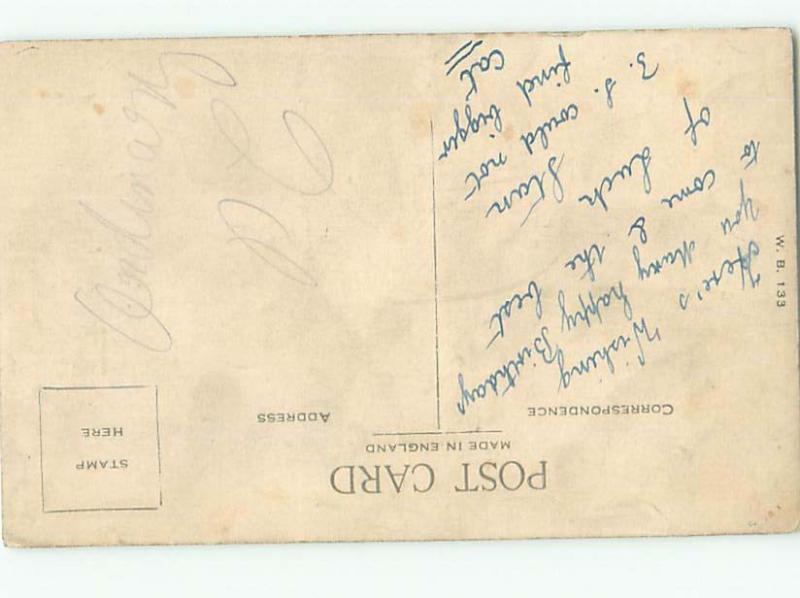 POST CARD
MADE IN ENGLAND
CORRESPONDENCE
ADDRESS
STAMP
HERE
Here's Wishing
you Many happy Birthday
to come & the best
of Luck Stan
S. could not
find bigger
cat
W. B. 133
Ordinary
PC